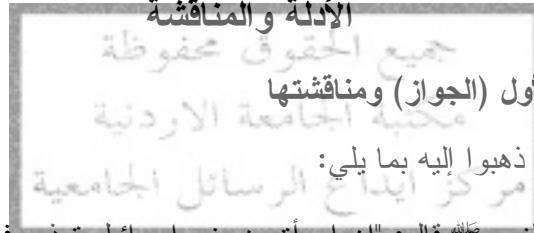 الأدلة والمناقشة
جميع الحقوق محفوظة
أول (الجواز) ومناقشتها
مكتبة الجامعة الاردنية
ذهبوا إليه بما يلي:
مركز ايداع الرسائل الجامعية